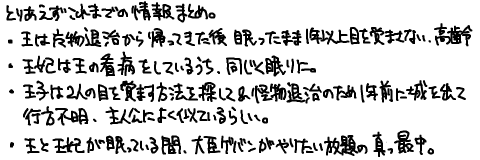 とりあえずこれまでの情報まとめ。
・王は魔物退治から帰ってきた後 眠ったまま1年以上目を覚まさない、高齢
・王妃は王の看病をしているうち、同じく眠りに。
・王子は2人の目を覚ます方法を探して&怪物退治のため1年前に城を出て
行方不明、主人公によく似ているらしい。
・王と王妃が眠っている間、大臣ゲバンがやりたい放題の真っ最中。